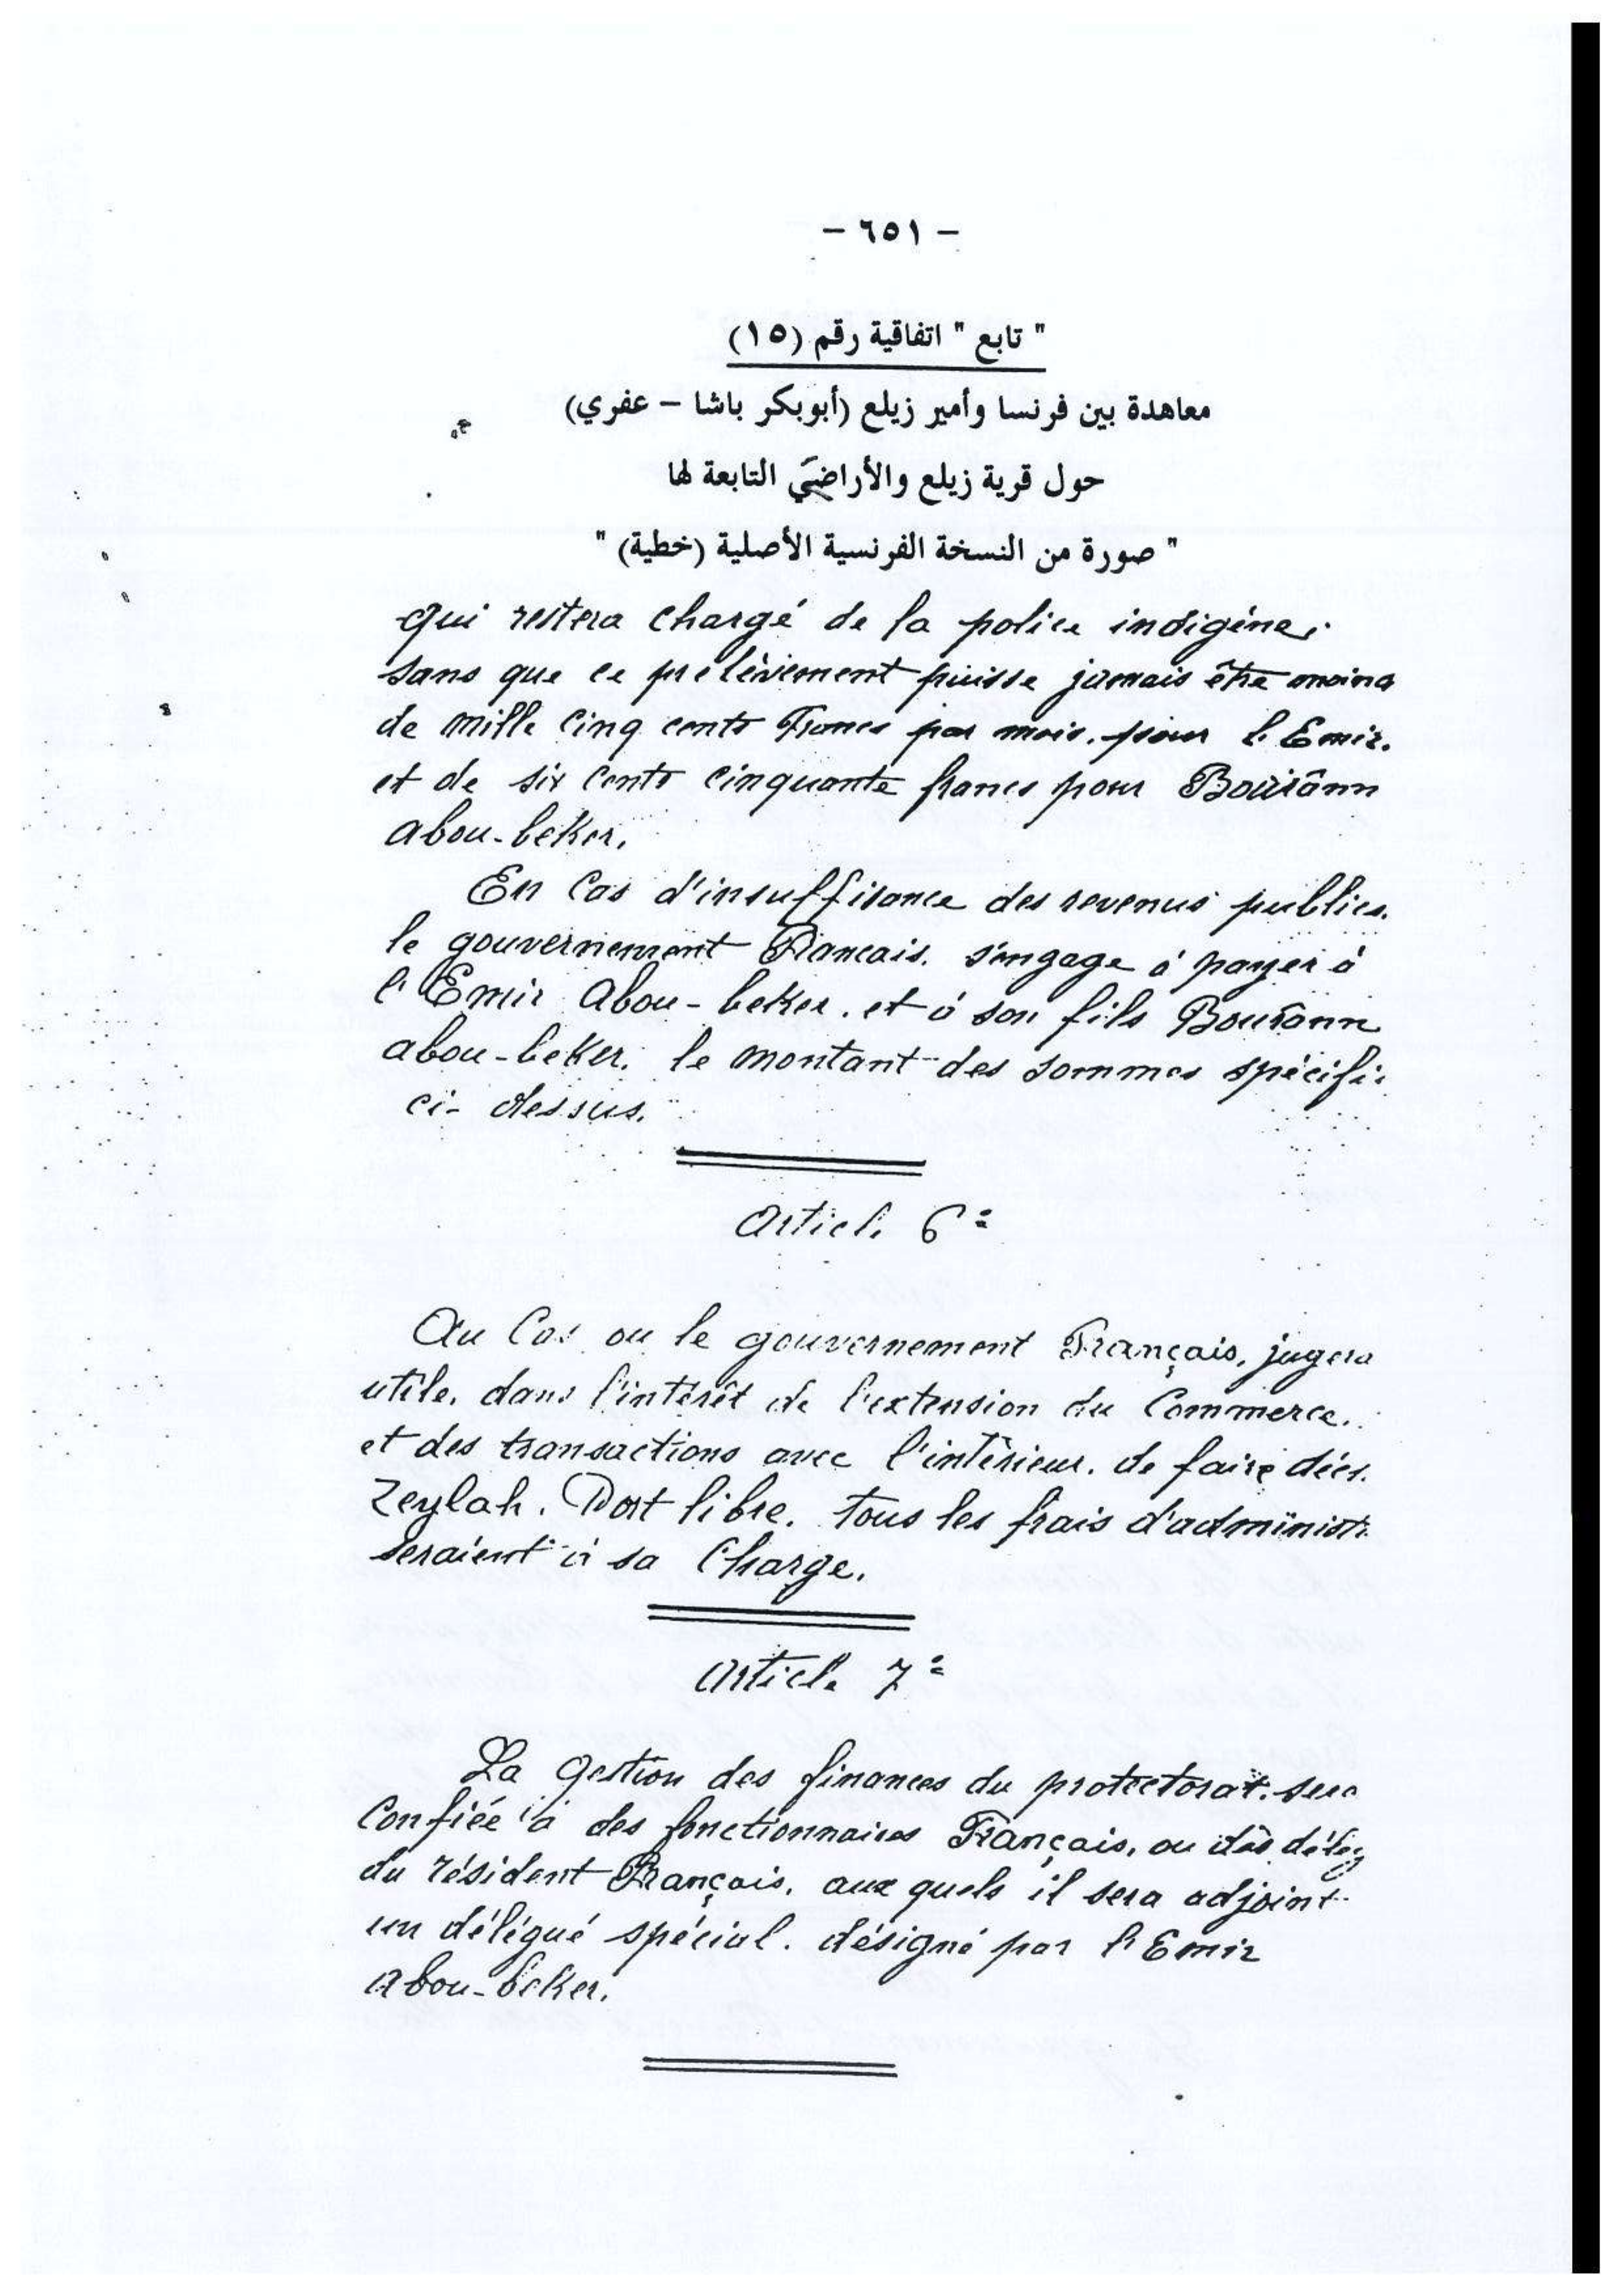 – ٦٥١ –
" تابع " اتفاقية رقم (١٥)
معاهدة بين فرنسا وأمير زيلع (أبوبكر باشا – عفري)
حول قرية زيلع والأراضي التابعة لها
" صورة من النسخة الفرنسية الأصلية (خطية) "
qui restera chargé de la police indigène,
sans que ce prélèvement puisse jamais être moins
de mille cinq cents Francs par mois, pour l'Emir.
et de six cents cinquante francs pour Bourânn
abou-beker.
En Cas d'insuffisance des revenus publics.
le gouvernement Francais. s'engage à payer à
l'Emir Abou-beker. et à son fils Bourânn
abou-beker. le montant des sommes spécifi
ci-dessus.
Article 6e
Au Cas ou le gouvernement Français, jugera
utile, dans l'intérêt de l'extension du Commerce.
et des transactions avec l'intérieur. de faire
Zeylah. Port libre. tous les frais d'administ
seraient à sa Charge.
Article 7e
La gestion des finances du protectorat. sera
Confiée à des fonctionnaires Français, ou des délég
du résident Français, aux quels il sera adjoint
un délégué spécial. désigné par l'Emir
Abou-beker.